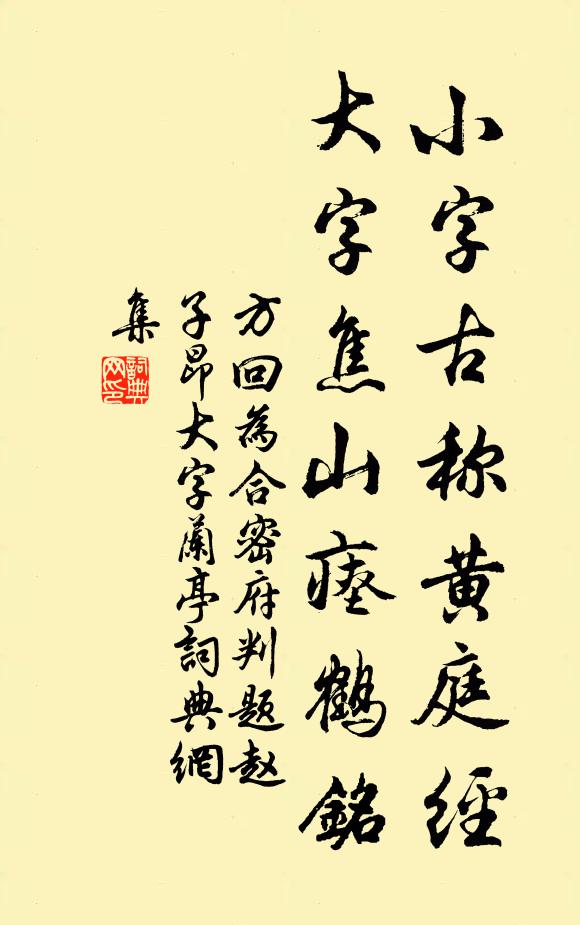 小字古称黄庭經
大字焦山瘗鶴銘
方回為合密府判題赵
子昂大字蘭亭詞典網
集
詞典
网印